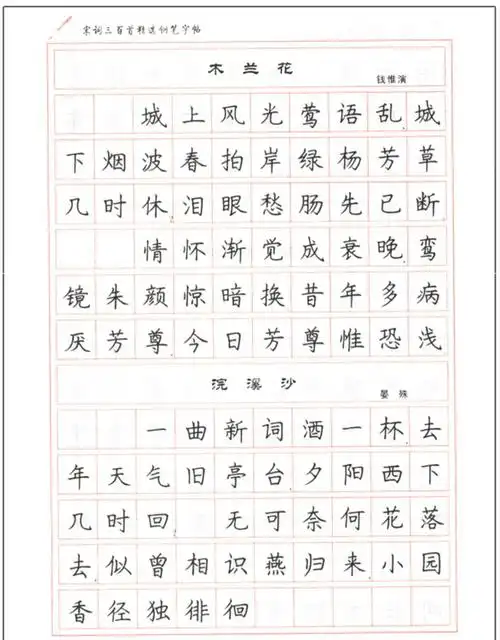 宋词三百首精选钢笔字帖
木兰花
钱惟演
城上风光莺语乱,城
下烟波春拍岸绿杨芳草
几时休,泪眼愁肠先已断
情怀渐觉成衰晚,鸾
镜朱颜惊暗换昔年多病
厌芳尊,今日芳尊惟恐浅
浣溪沙
晏殊
一曲新词酒一杯,去
年天气旧亭台夕阳西下
几时回 无可奈何花落
去,似曾相识燕归来小园
香径独徘徊